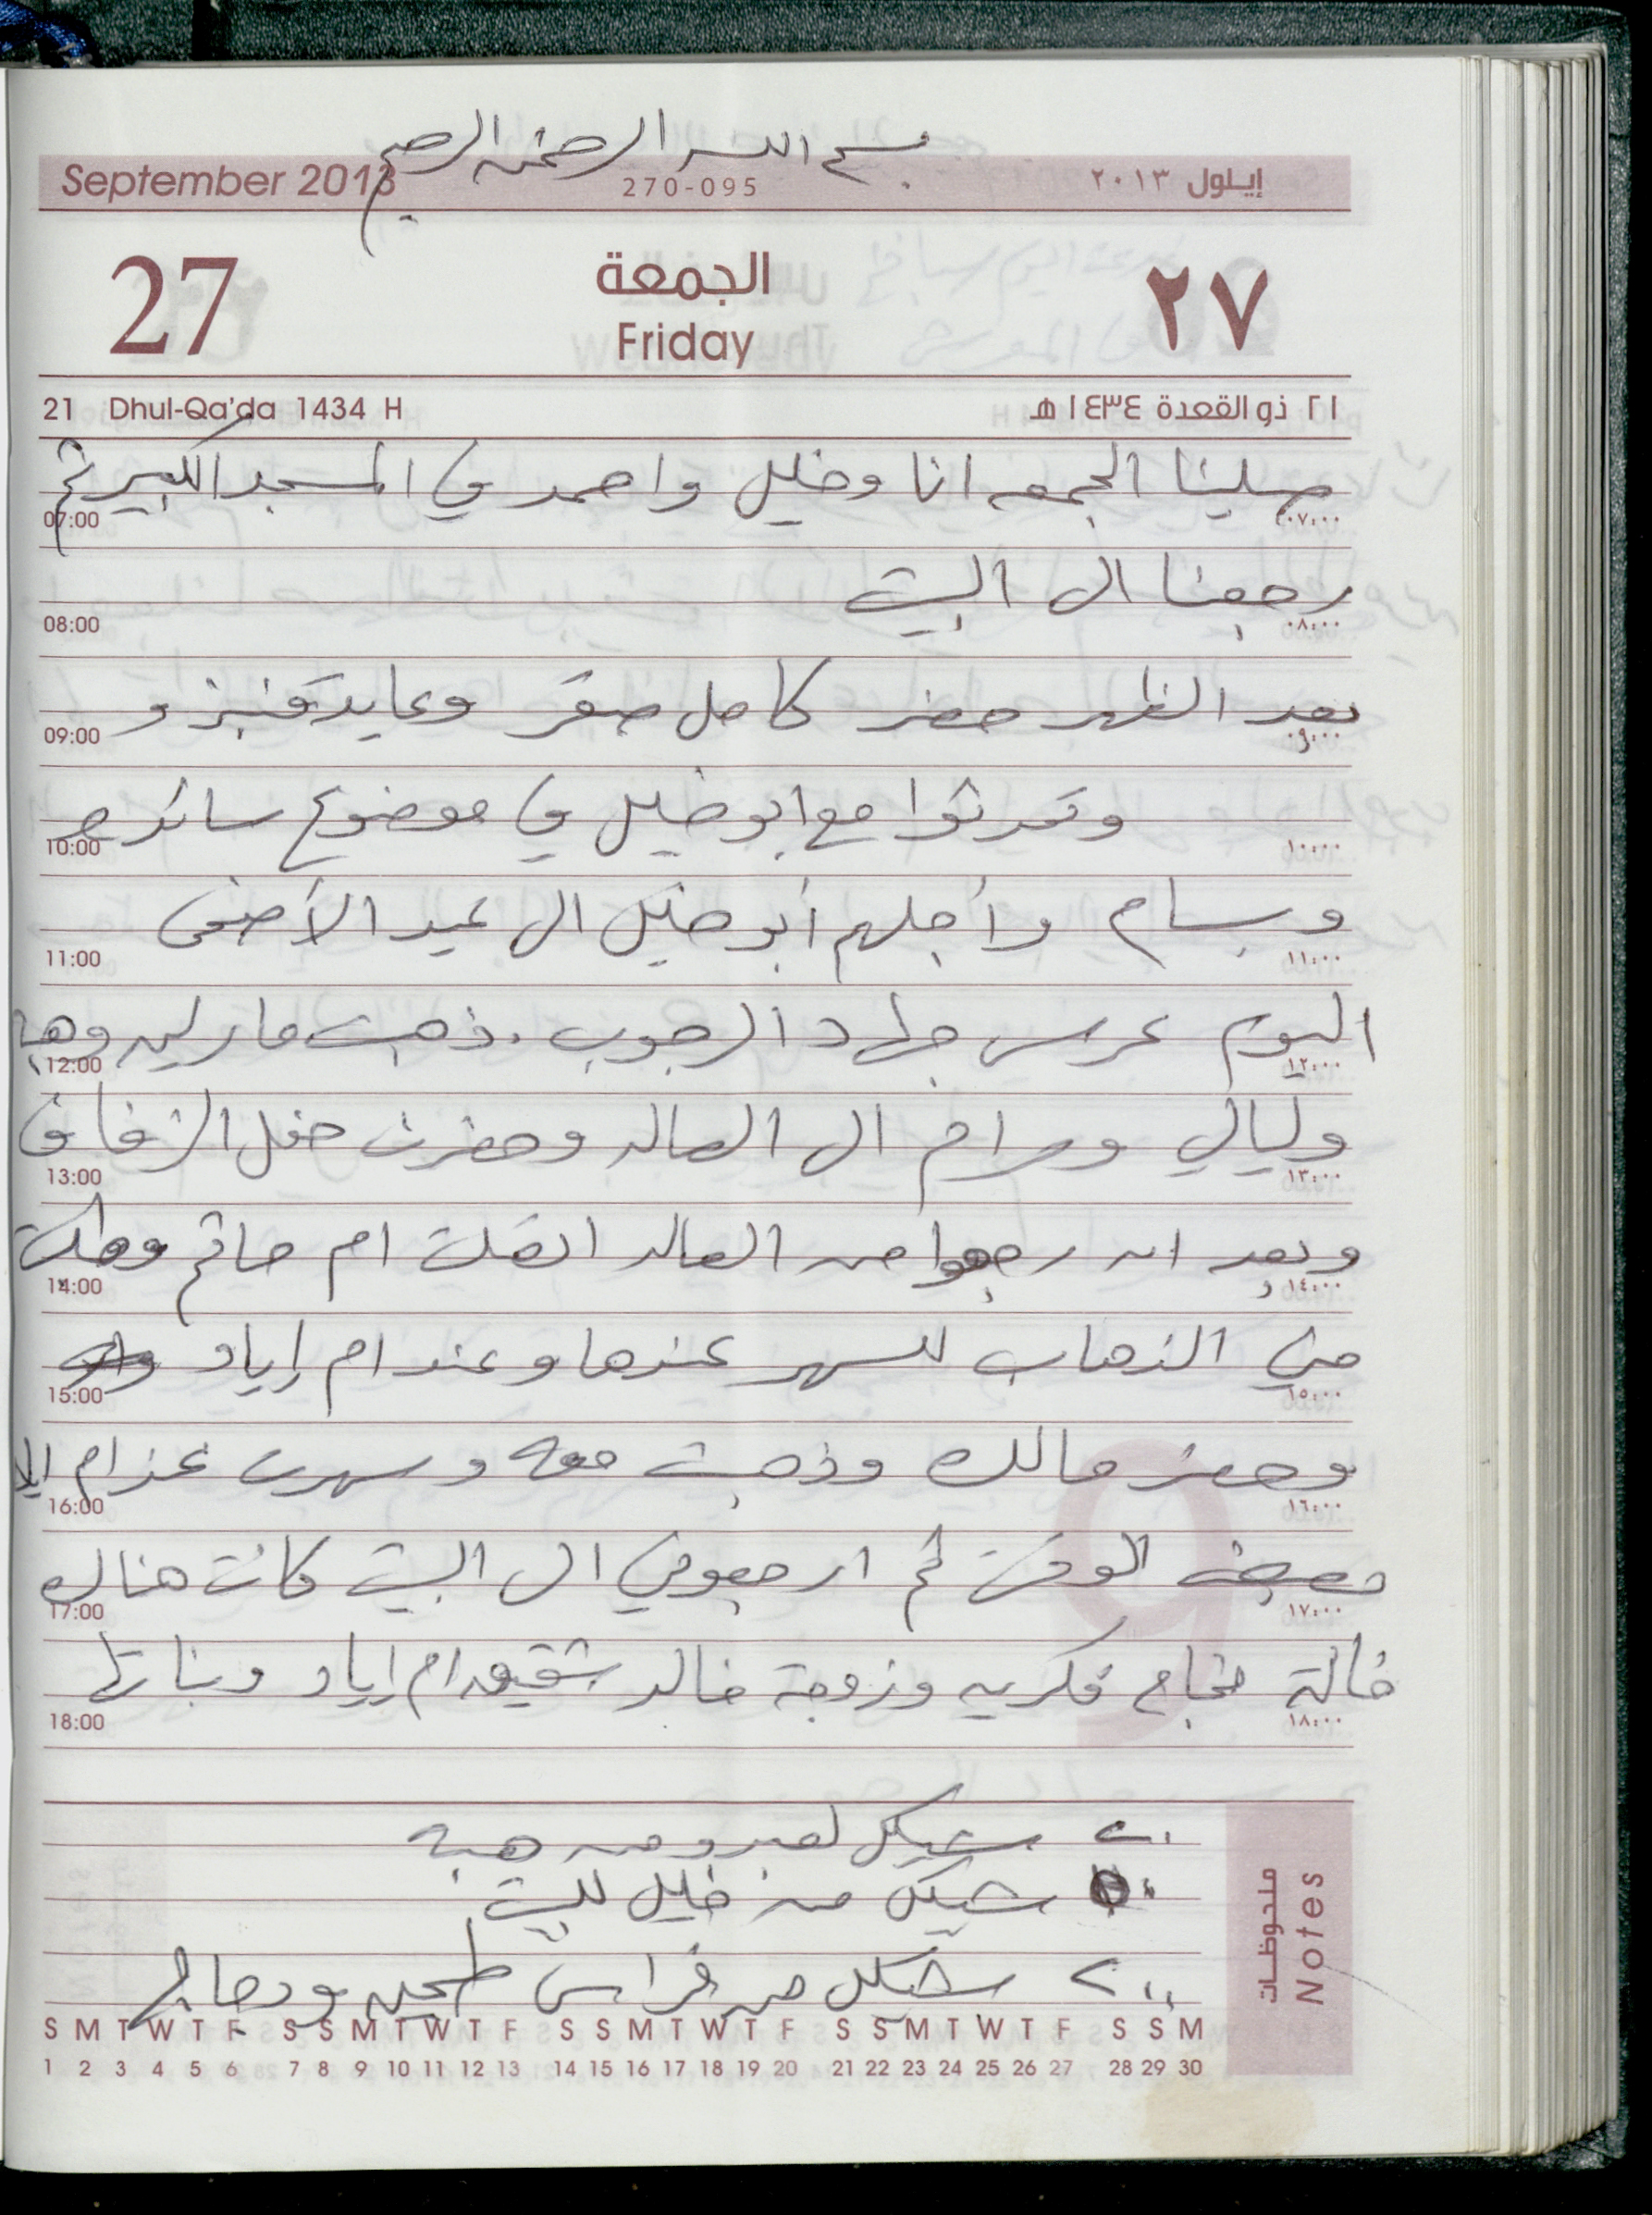 بسم الله الرحمن الرحيم
September 2013 270-095 إيلول ٢٠١٣
27 الجمعة ٢٧
Friday
21 Dhul-Qa'da 1434 H ٢١ ذو القعدة ١٤٣٤ هـ
صلينا الجمعه انا وخليل واحمد في المسجد الكبير ثم
07:00 ٠٧:٠٠
رجعنا الى البيت
08:00 ٠٨:٠٠
بعد الظهر حضر كامل صقر وعايد قنبز و
09:00 ٠٩:٠٠
وتحدثوا مع ابو خليل في موضوع سائد
10:00 ١٠:٠٠
وبسام وأجلهم أبو خليل الى عيد الأضحى
11:00 ١١:٠٠
اليوم عرس جهاد الرجوب . ذهبت مارلين وهبه
12:00 ١٢:٠٠
وليالي ومرام الى الصاله وحضرت حفل الزفاف
13:00 ١٣:٠٠
وبعد ان رجعوا من الصاله اتصلت ام حاتم وطلبت
14:00 ١٤:٠٠
مني الذهاب للسهر عندها وعند ام إياد
15:00 ١٥:٠٠
وحضر مالك وذهبت معه وسهرت عند ام ايا
16:00 ١٦:٠٠
بعض الوقت ثم ارجعوني الى البيت كانت هناك
17:00 ١٧:٠٠
خالة فكريه وزوجة خالد شقيق ام إياد وبناتها
18:00 ١٨:٠٠
٢٠ شيكل من هبه
شيكل من خليل للبيت
٢٠٠ شيكل من فراس طحين ودجاج
ملحوظات
Notes
S M T W T F S S M T W T F S S M T W T F S S M T W T F S S M
1 2 3 4 5 6 7 8 9 10 11 12 13 14 15 16 17 18 19 20 21 22 23 24 25 26 27 28 29 30